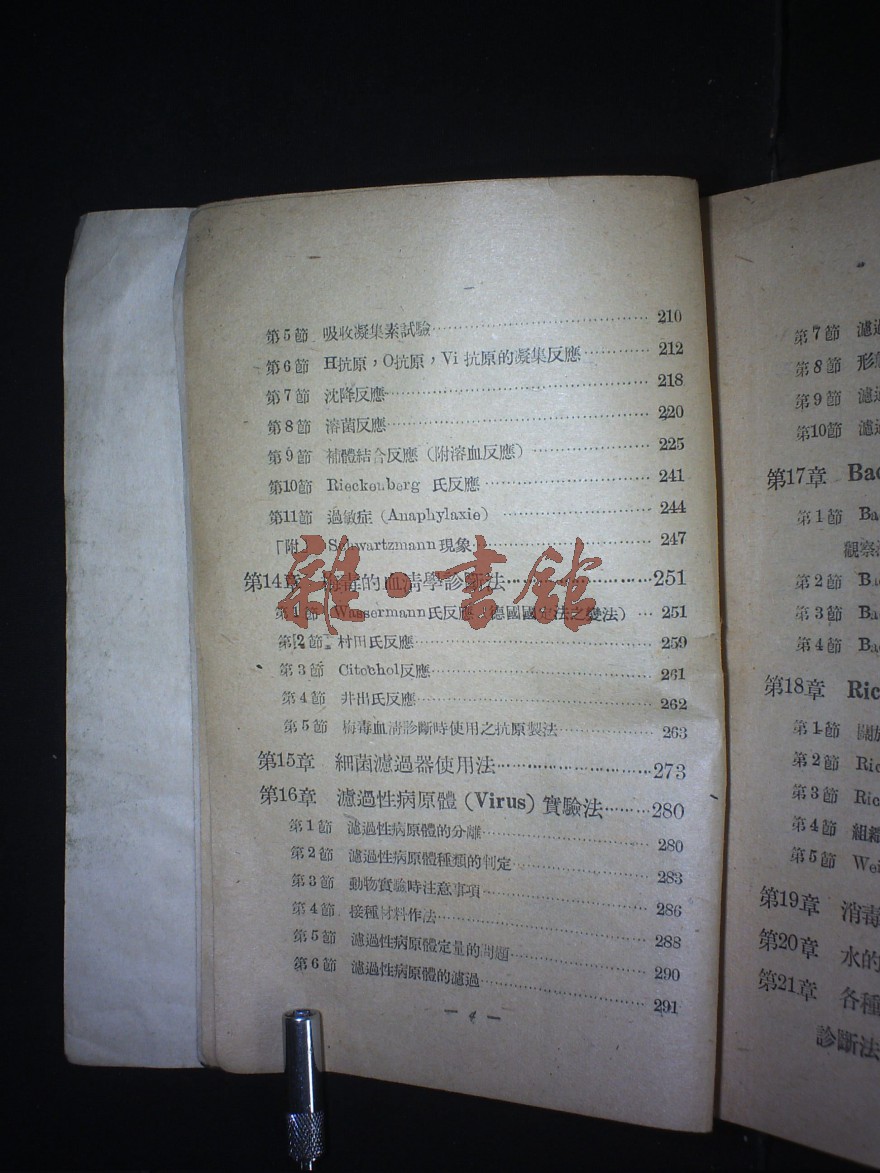 第5節 吸收凝集素試驗 210
第6節 H抗原，O抗原，Vi 抗原的凝集反應 212
第7節 沈降反應 218
第8節 溶菌反應 220
第9節 補體結合反應（附溶血反應） 225
第10節 Rieckenberg 氏反應 241
第11節 過敏症 (Anaphylaxie) 244
「附」 Schwartzmann 現象 247
第14章 梅毒的血淸學診斷法 251
第1節 Wassermann氏反應（德國國定法之變法） 251
第2節 村田氏反應 259
第3節 Citochol反應 261
第4節 井出氏反應 262
第5節 梅毒血淸診斷時使用之抗原製法 263
第15章 細菌濾過器使用法 273
第16章 濾過性病原體 (Virus) 實驗法 280
第1節 濾過性病原體的分離 280
第2節 濾過性病原體種類的判定 283
第3節 動物實驗時注意事項 286
第4節 接種材料作法 288
第5節 濾過性病原體定量的問題 290
第6節 濾過性病原體的濾過 291
— 4 —
雜·書館
第7節 濾過
第8節 形態
第9節 濾過
第10節 濾過
第17章 Bac
第1節 Ba
觀察
第2節 Bac
第3節 Ba
第4節 Ba
第18章 Ric
第1節
第2節 Ric
第3節 Ric
第4節 組織
第5節 Wei
第19章 消毒
第20章 水的
第21章 各種
診斷法